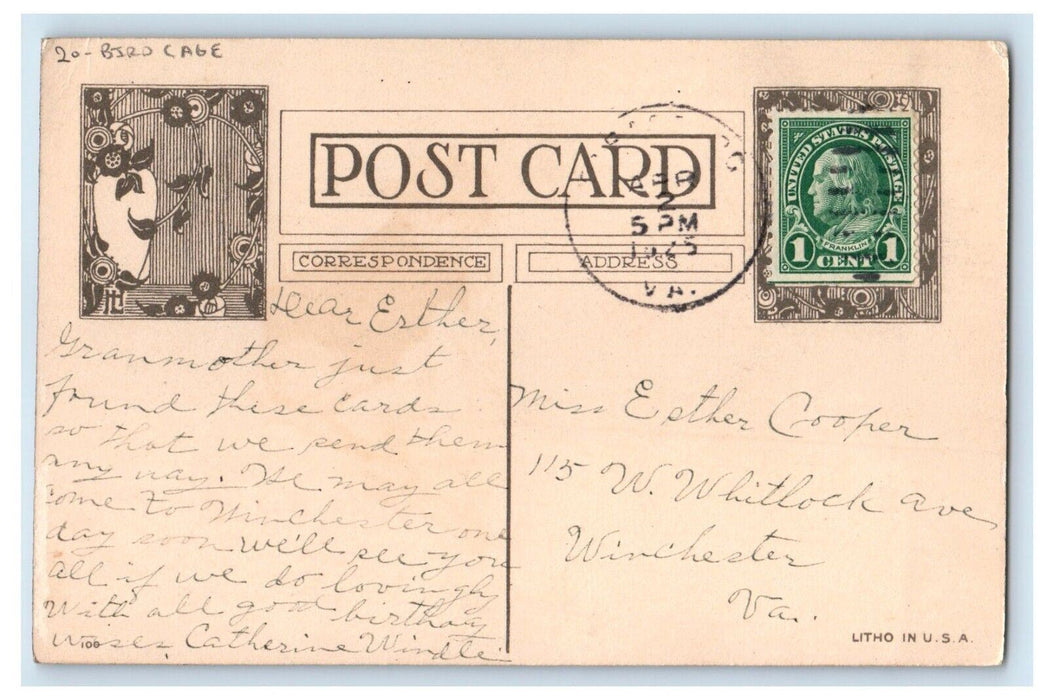 20- BIRD CAGE
POST CARD
CORRESPONDENCE
ADDRESS
APR
2
5 PM
1925
VA.
UNITED STATES POSTAGE
FRANKLIN
1 CENT 1
Dear Esther,
Granmother just
found these cards
so that we send them
any way. We may all
come to Winchester one
day soon we'll see you
all if we do lovingly
With all good birthday
wises, Catherine Windle
106
Miss Esther Cooper
115 W. Whitlock ave
Winchester
Va.
LITHO IN U.S.A.